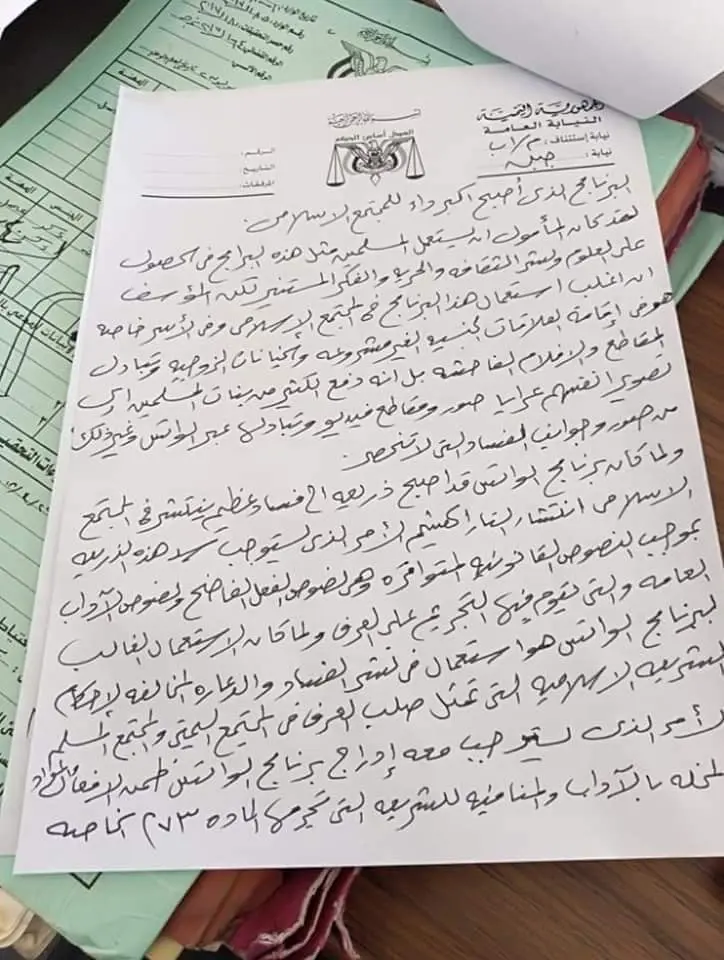 الجمهورية اليمنية
النيابة العامة
نيابة إستئناف: م/اب
نيابة: جبله
بسم الله الرحمن الرحيم
العدل أساس الحكم
الرقم:
التاريخ:
المرفقات:
البرنامج الذى أصبح اكبر داء للمجتمع الاسلامى.
لقد كان المأمول ان يستعمل المسلمين مثل هذه البرامج فى الحصول
على العلوم ونشر الثقافه والحريه والفكر المستنير لكن المؤسف
ان اغلب استعمال هذا البرنامج فى المجتمع الإسلامى وفى الأسر خاصه
هو فى إقامة العلاقات الجنسيه الغير مشروعه والخيانات الزوجيه وتبادل
المقاطع والافلام الفاحشه بل انه دفع الكثير من بنات المسلمين إلى
تصوير انفسهم عرايا صور ومقاطع فيديو وتبادلها عبر الواتس وغير ذلك
من صور وجوانب الفساد التى لا تنحصر.
ولما كان برنامج الواتس قد اصبح ذريعه الى فساد عظيم ينتشر فى المجتمع
الاسلامى انتشار النار الهشيم الأمر الذى يستوجب سد هذه الذريعه
بموجب النصوص القانونيه المتوافره وهى نصوص الفعل الفاضح ونصوص الآداب
العامه والتى يقوم فيها التجريم على العرف ولما كان الاستعمال الغالب
لبرنامج الواتس هو استعمال فى نشر الفساد والدعاره المخالفه لإحكام
الشريعه الاسلاميه التى تمثل صلب العرف فى المجتمع اليمنى والمجتمع المسلم
الأمر الذى يستوجب معه إدراج برنامج الواتس ضمن الافعال والمواد
المخله بالآداب والمنافيه للشريعه التى تجرمها الماده ٢٧٣ الخاصه